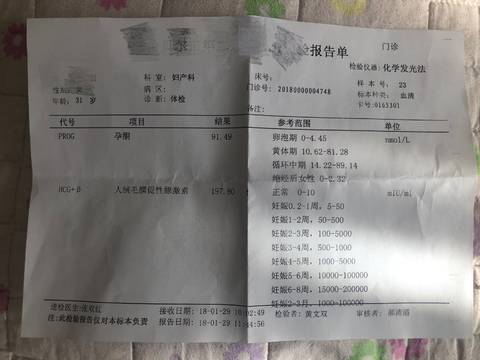 检报告单 门诊
检验仪器: 化学发光法
科 室: 妇产科 床号: 样 本 号: 23
性别: 病 区: 门诊号: 20180000004748 标本种类: 血清
年龄: 31 岁 诊 断: 体检 备注: 卡号:0163301
代号 项目 结果 参考范围 单位
PROG 孕酮 91.49 卵泡期 0-4.45 nmol/L
黄体期 10.62-81.28
循环中期 14.22-89.14
绝经后女性 0-2.32
HCG+β 人绒毛膜促性腺激素 197.80 正常 0-10 mIU/ml
妊娠0.2-1周, 5-50
妊娠1-2周, 50-500
妊娠2-3周, 100-5000
妊娠3-4周, 500-1000
妊娠4-5周, 1000-5000
妊娠5-6周, 10000-100000
妊娠6-8周, 15000-200000
妊娠2-3月, 1000-100000
送检医生:张双红 接收日期: 18-01-29 10:02:49 检验者: 黄文双 审核者:
注:此检验报告仅对本标本负责 报告日期: 18-01-29 11:44:56